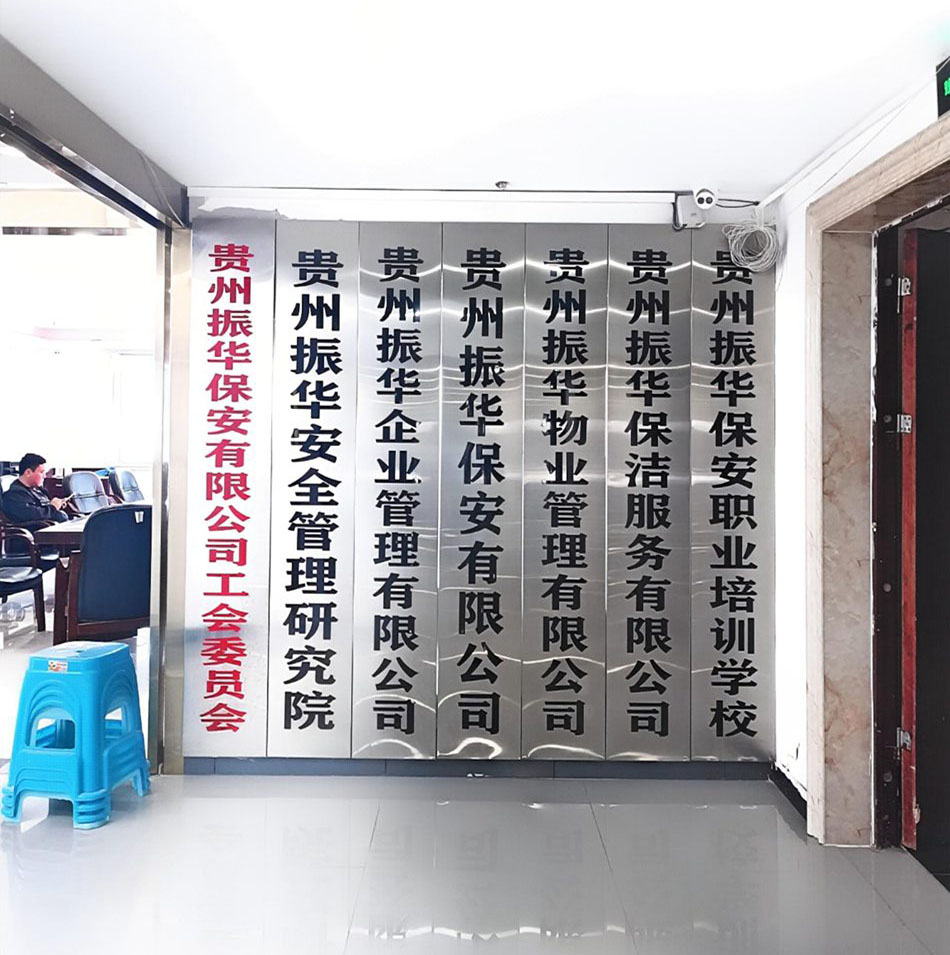 贵州振华保安有限公司工会委员会
贵州振华安全管理研究院
贵州振华企业管理有限公司
贵州振华保安有限公司
贵州振华物业管理有限公司
贵州振华保洁服务有限公司
贵州振华保安职业培训学校